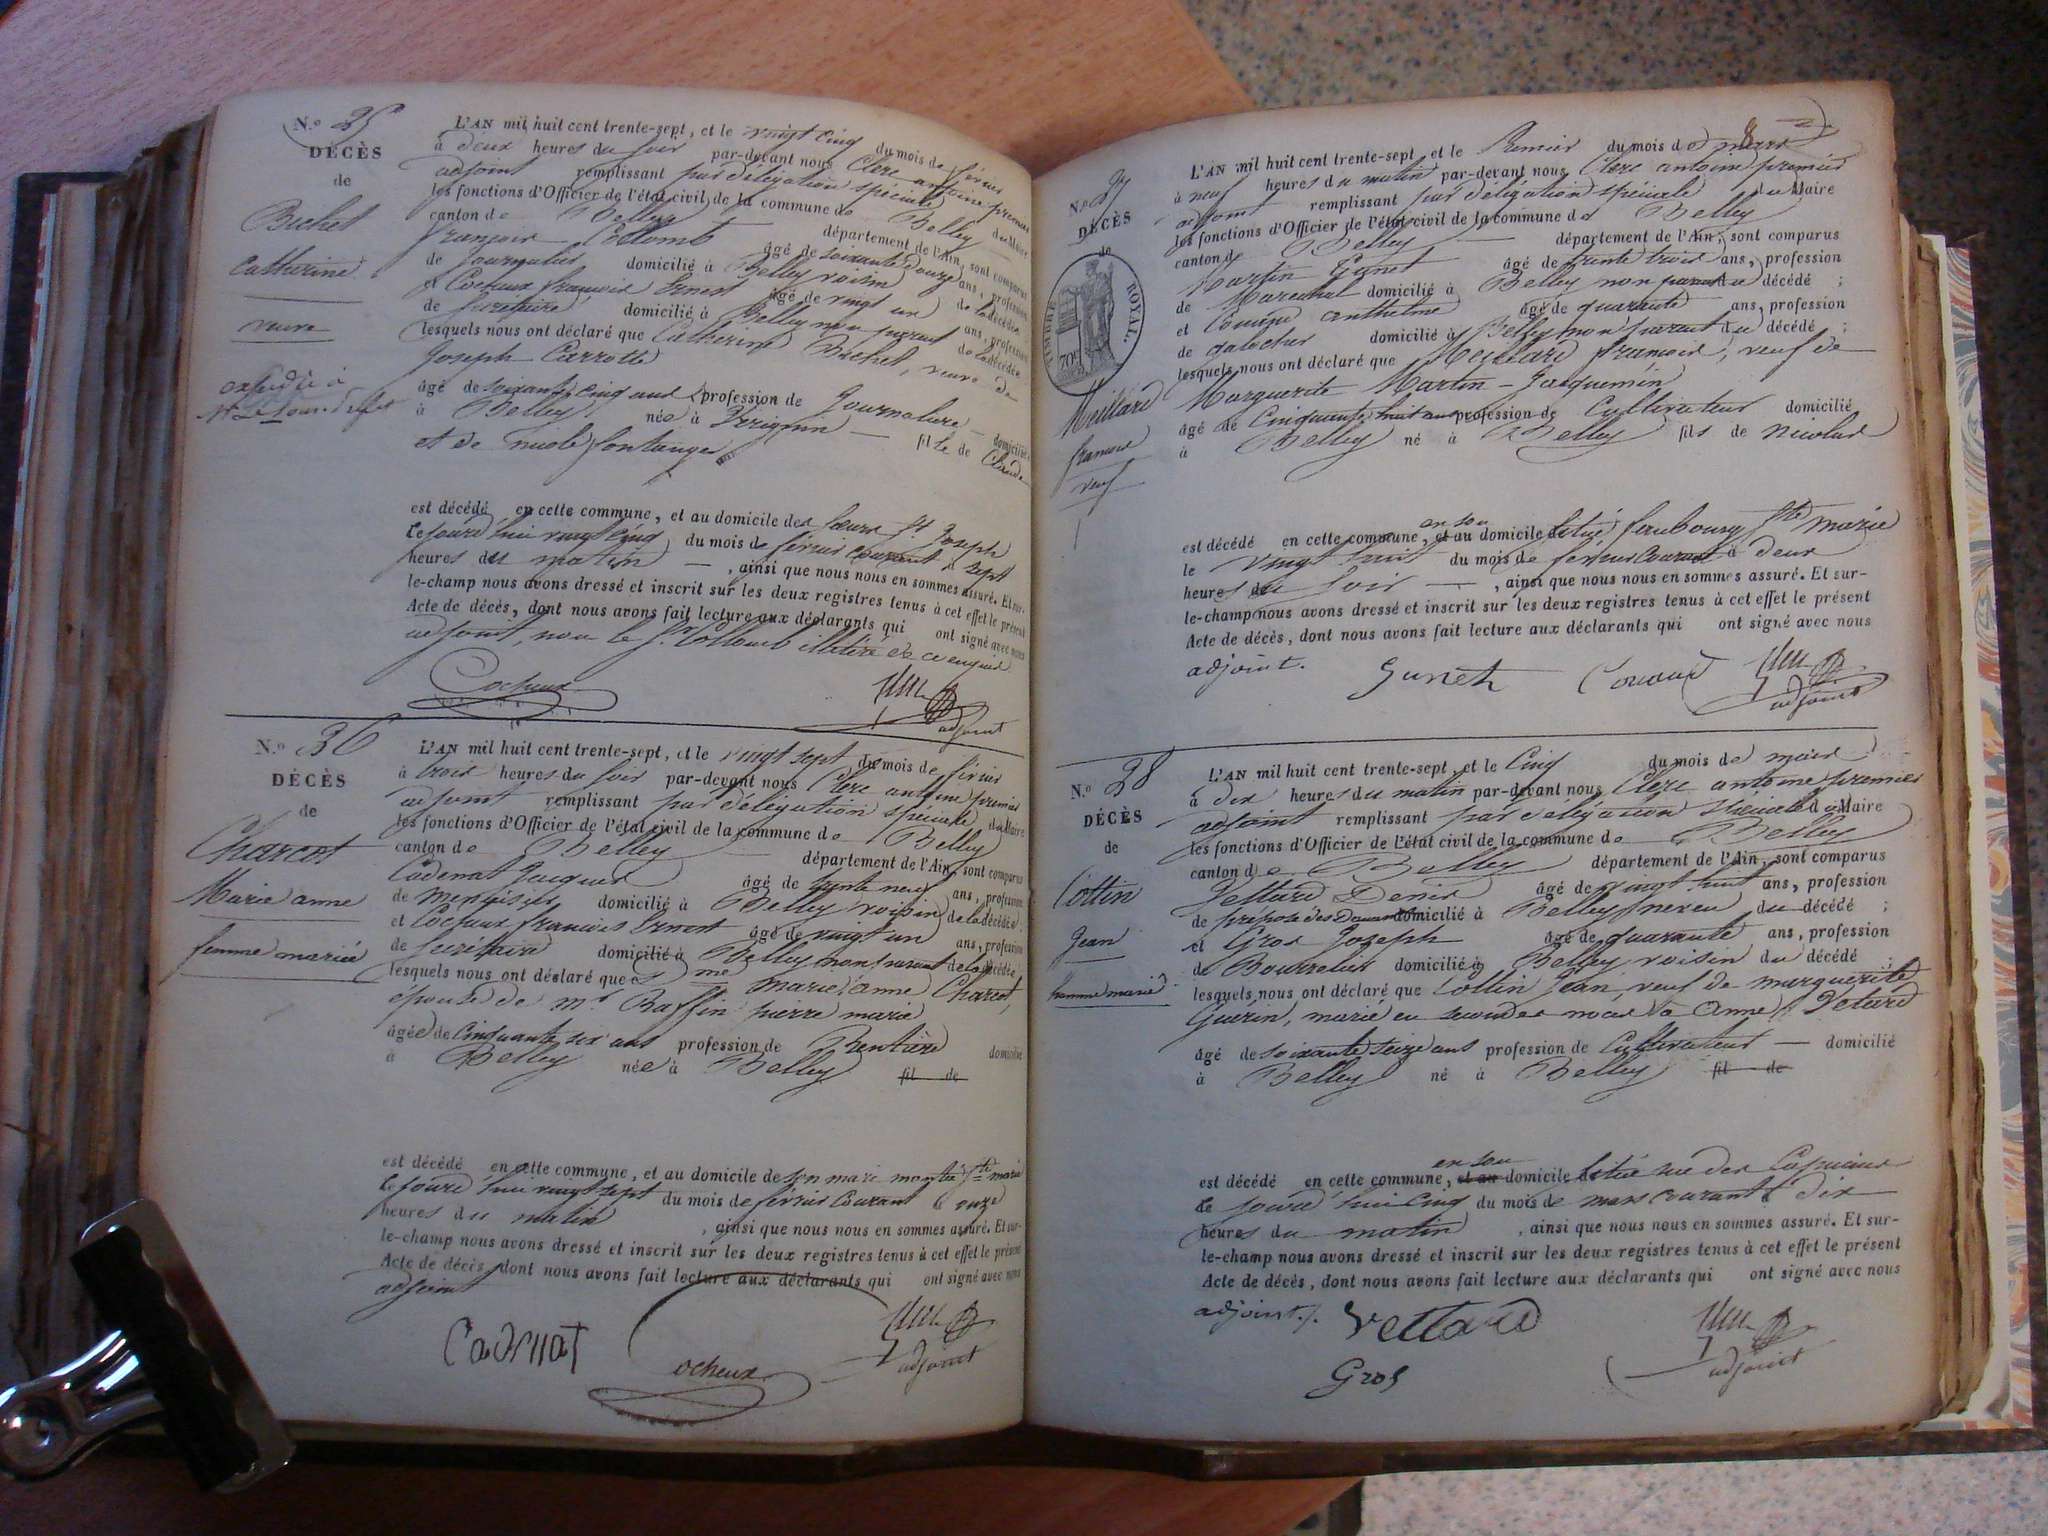 N.o 35
DÉCÈS
de
Bichet
Catherine
veuve
L'AN mil huit cent trente-sept, et le vingt cinq du mois de février
à deux heures du soir par-devant nous Clerc antoine premier
adjoint remplissant par délégation spéciale du Maire
les fonctions d'Officier de l'état civil de la commune de Belley
canton de Belley département de l'Ain, sont comparus
françois Collomb âgé de soixante douze ans, profession
de journalier domicilié à Belley voisin de la décédée
et Cocheux françois Ernest âgé de vingt un ans, profession
de secrétaire domicilié à Belley non parent de la décédée
lesquels nous ont déclaré que Catherine Bichet, veuve de
Joseph Carrotte
âgé de soixante cinq ans profession de Journalière domicilié
à Belley née à fille de Claude
et de
est décédé en cette commune, et au domicile des Sœurs St. Joseph
le jourd'hui vingt cinq du mois de février courant à sept
heures du matin , ainsi que nous nous en sommes assuré. Et sur-
le-champ nous avons dressé et inscrit sur les deux registres tenus à cet effet le présent
Acte de décès, dont nous avons fait lecture aux déclarants qui ont signé avec nous
adjoint, non le Sr. Collomb illitéré de ce enquis
Cocheux
adjoint
N.o 36
DÉCÈS
de
Charcot
Marie anne
femme mariée
L'AN mil huit cent trente-sept, et le vingt sept du mois de février
à trois heures du soir par-devant nous Clerc antoine premier
adjoint remplissant par délégation spéciale du Maire
les fonctions d'Officier de l'état civil de la commune de Belley
canton de Belley département de l'Ain, sont comparus
Cadenat Jacques âgé de trente neuf ans, profession
de menuisier domicilié à Belley voisin de la décédée
et Cocheux francois Ernest âgé de vingt un ans, profession
de secrétaire domicilié à Belley non parent de la décédée
lesquels nous ont déclaré que me marie anne Charcot,
épouse de mr. Raffin pierre marie
âgée de cinquante six ans profession de Rentière domicilié
à Belley née à Belley fil de
est décédé en cette commune, et au domicile de son mari montée Ste marie
le jourd'hui vingt sept du mois de février courant à onze
heures du matin , ainsi que nous nous en sommes assuré. Et sur-
le-champ nous avons dressé et inscrit sur les deux registres tenus à cet effet le présent
Acte de décès, dont nous avons fait lecture aux déclarants qui ont signé avec nous
adjoint
Cadenat
Cocheux
adjoint
8
N.o 37
DÉCÈS
de
TIMBRE ROYAL
70c
Meillard
francois
veuf
L'AN mil huit cent trente-sept, et le Premier du mois de mars
à neuf heures du matin par-devant nous Clerc antoine premier
adjoint remplissant par délégation spéciale du Maire
les fonctions d'Officier de l'état civil de la commune de Belley
canton de Belley département de l'Ain, sont comparus
Martin Gunet âgé de trente trois ans, profession
de Marechal domicilié à Belley non parent du décédé ;
et anthelme âgé de quarante ans, profession
de galocher domicilié à Belley non parent du décédé ;
lesquels nous ont déclaré que Meillard francois, veuf de
Marguerite Martin-Jacquemin
âgé de Cinquante huit ans profession de Cultivateur domicilié
à Belley né à Belley fils de nicolas
est décédé en cette commune, et au en son domicile situé faubourg Ste marie
le vingt huit du mois de fevrier courant à deux
heures du soir , ainsi que nous nous en sommes assuré. Et sur-
le-champ nous avons dressé et inscrit sur les deux registres tenus à cet effet le présent
Acte de décès, dont nous avons fait lecture aux déclarants qui ont signé avec nous
adjoint.
Gunet
adjoint
N.o 38
DÉCÈS
de
Cottin
Jean
homme marié
L'AN mil huit cent trente-sept, et le Cinq du mois de mars
à dix heures du matin par-devant nous Clerc antoine premier
adjoint remplissant par délégation spéciale du Maire
les fonctions d'Officier de l'état civil de la commune de Belley
canton de Belley département de l'Ain, sont comparus
Vettard Denis âgé de vingt huit ans, profession
de préposé des Douanes domicilié à Belley neveu du décédé ;
et Gros Joseph âgé de quarante ans, profession
de Bourrelier domicilié à Belley voisin du décédé ;
lesquels nous ont déclaré que Cottin Jean, veuf de marguerite
Guérin, marié en secondes noces à Anne Vetard
âgé de soixante seize ans profession de Cultivateur domicilié
à Belley né à Belley fil de
est décédé en cette commune, et au en son domicile situé rue des Capucins
le jourd'hui cinq du mois de mars courant à dix
heures du matin , ainsi que nous nous en sommes assuré. Et sur-
le-champ nous avons dressé et inscrit sur les deux registres tenus à cet effet le présent
Acte de décès, dont nous avons fait lecture aux déclarants qui ont signé avec nous
adjoint.
Vettard
Gros
adjoint